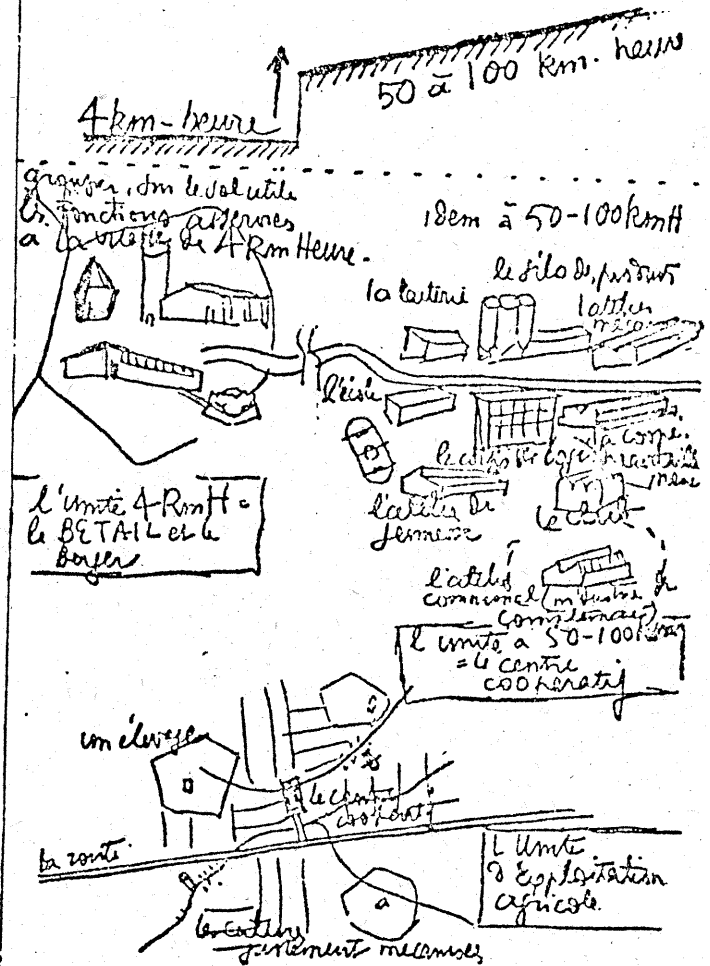 4 km-heure
50 à 100 km. heure
grouper, sur le sol utile
les fonctions asservies
a la vitesse de 4 km Heure.
idem à 50-100 kmH
la laiterie
le silo de produits
l'atelier
mécan
l'école
la coopé.
l'atelier de
fermière
le club
l'atelier
communal (industrie de
complément)
l'unité 4 KmH =
le BETAIL et le
berger
l'unité a 50-100
= le centre
coopératif
un élevage
le centre
coopérat
la route
L'Unité
d'Exploitation
agricole.
les cultures
justement mécanisées